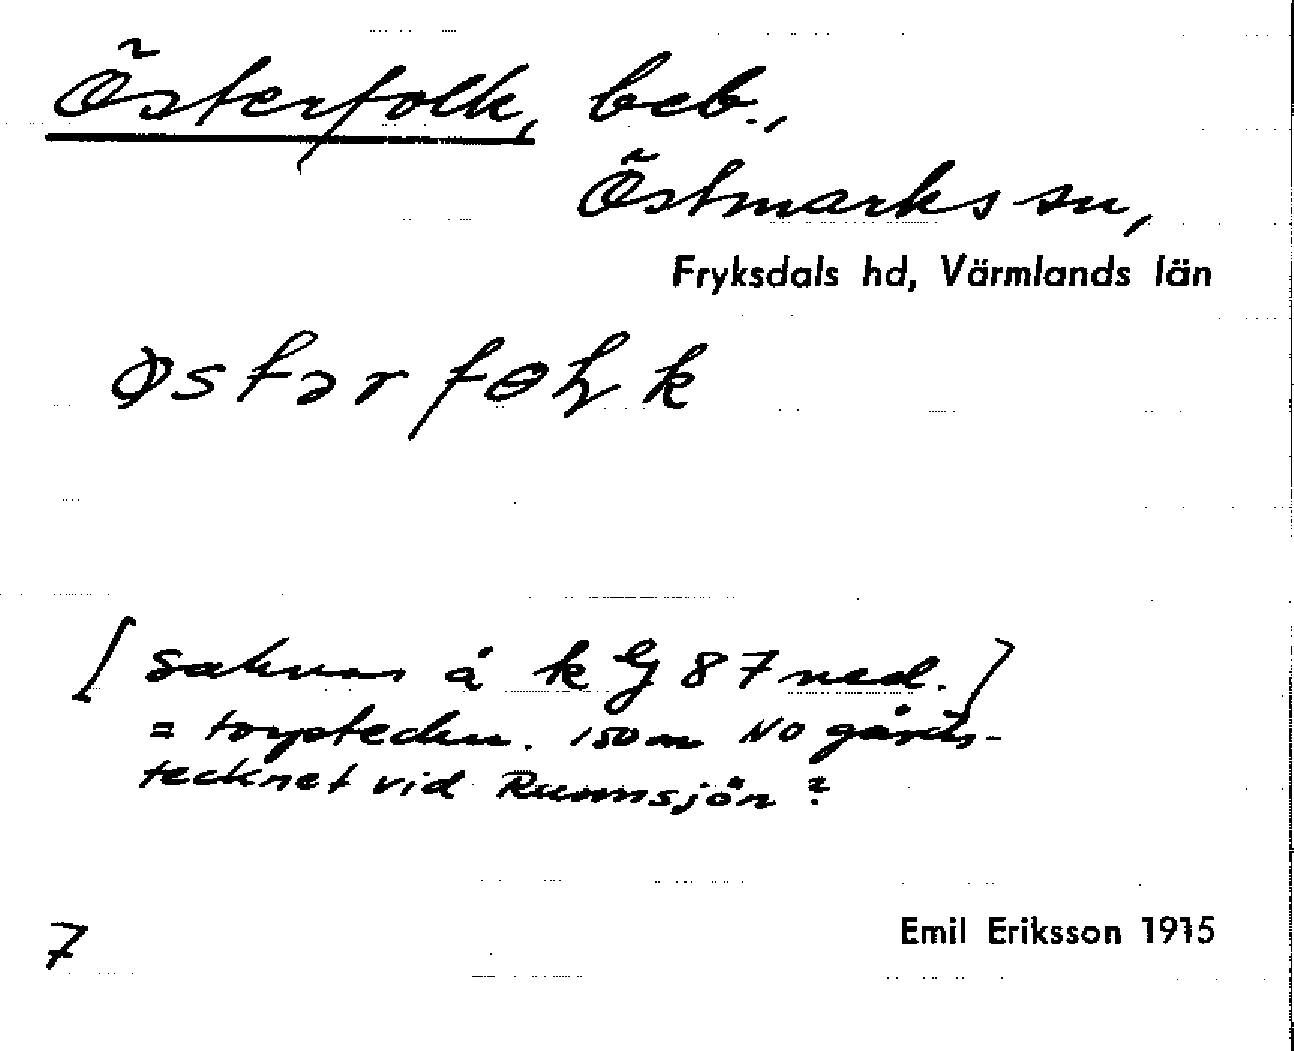 Österfolk, beb.,
Östmarks sn,
Fryksdals hd, Värmlands län
østərfɵɽk
[saknas å k Ej 87 ned.]
= torptecken. 150 m NO gårds-
tecknet vid Runnsjön?
7
Emil Eriksson 1915